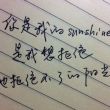 你是我的sunshine
是我想拒绝
也拒绝不了的阳光